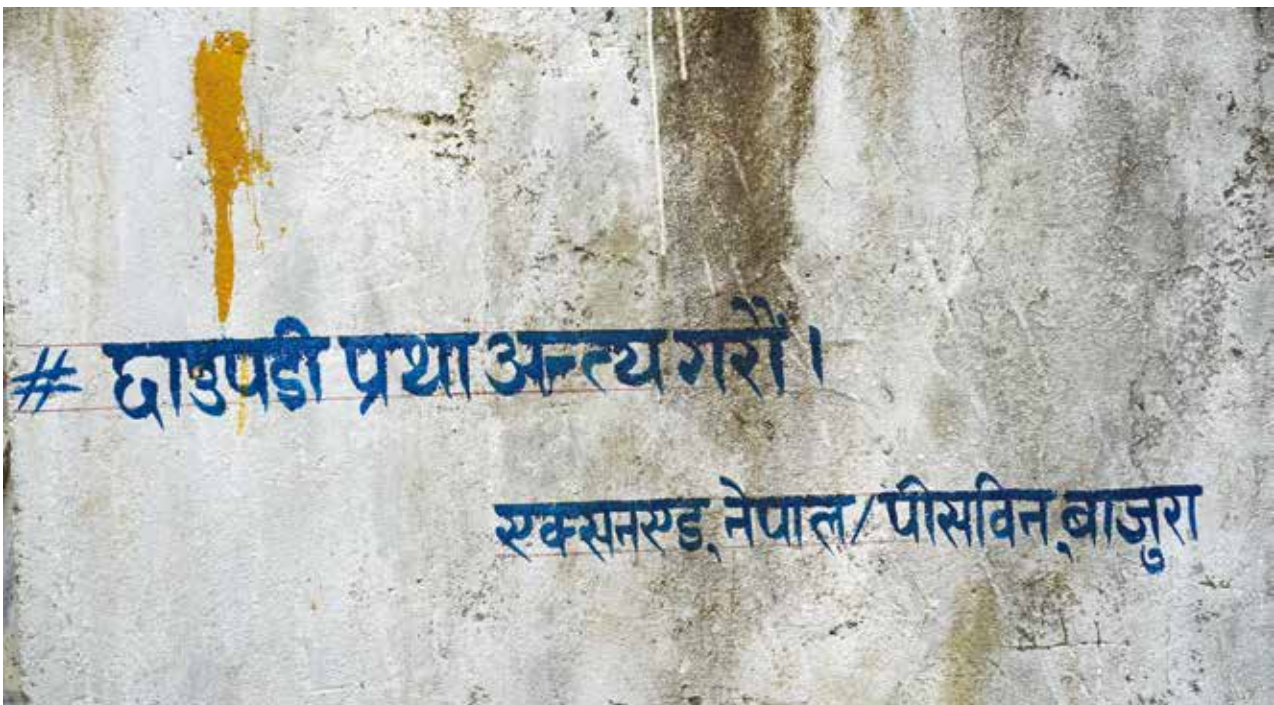 # छाउपडी प्रथा अन्त्य गरौं।
एक्सनएड् नेपाल/पीसविन् बाजुरा